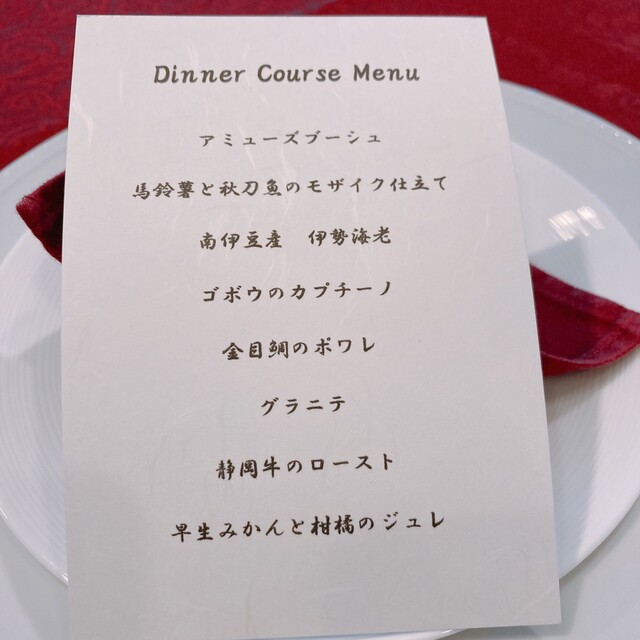 Dinner Course Menu
アミューズブーシュ
馬鈴薯と秋刀魚のモザイク仕立て
南伊豆産　伊勢海老
ゴボウのカプチーノ
金目鯛のポワレ
グラニテ
静岡牛のロースト
早生みかんと柑橘のジュレ